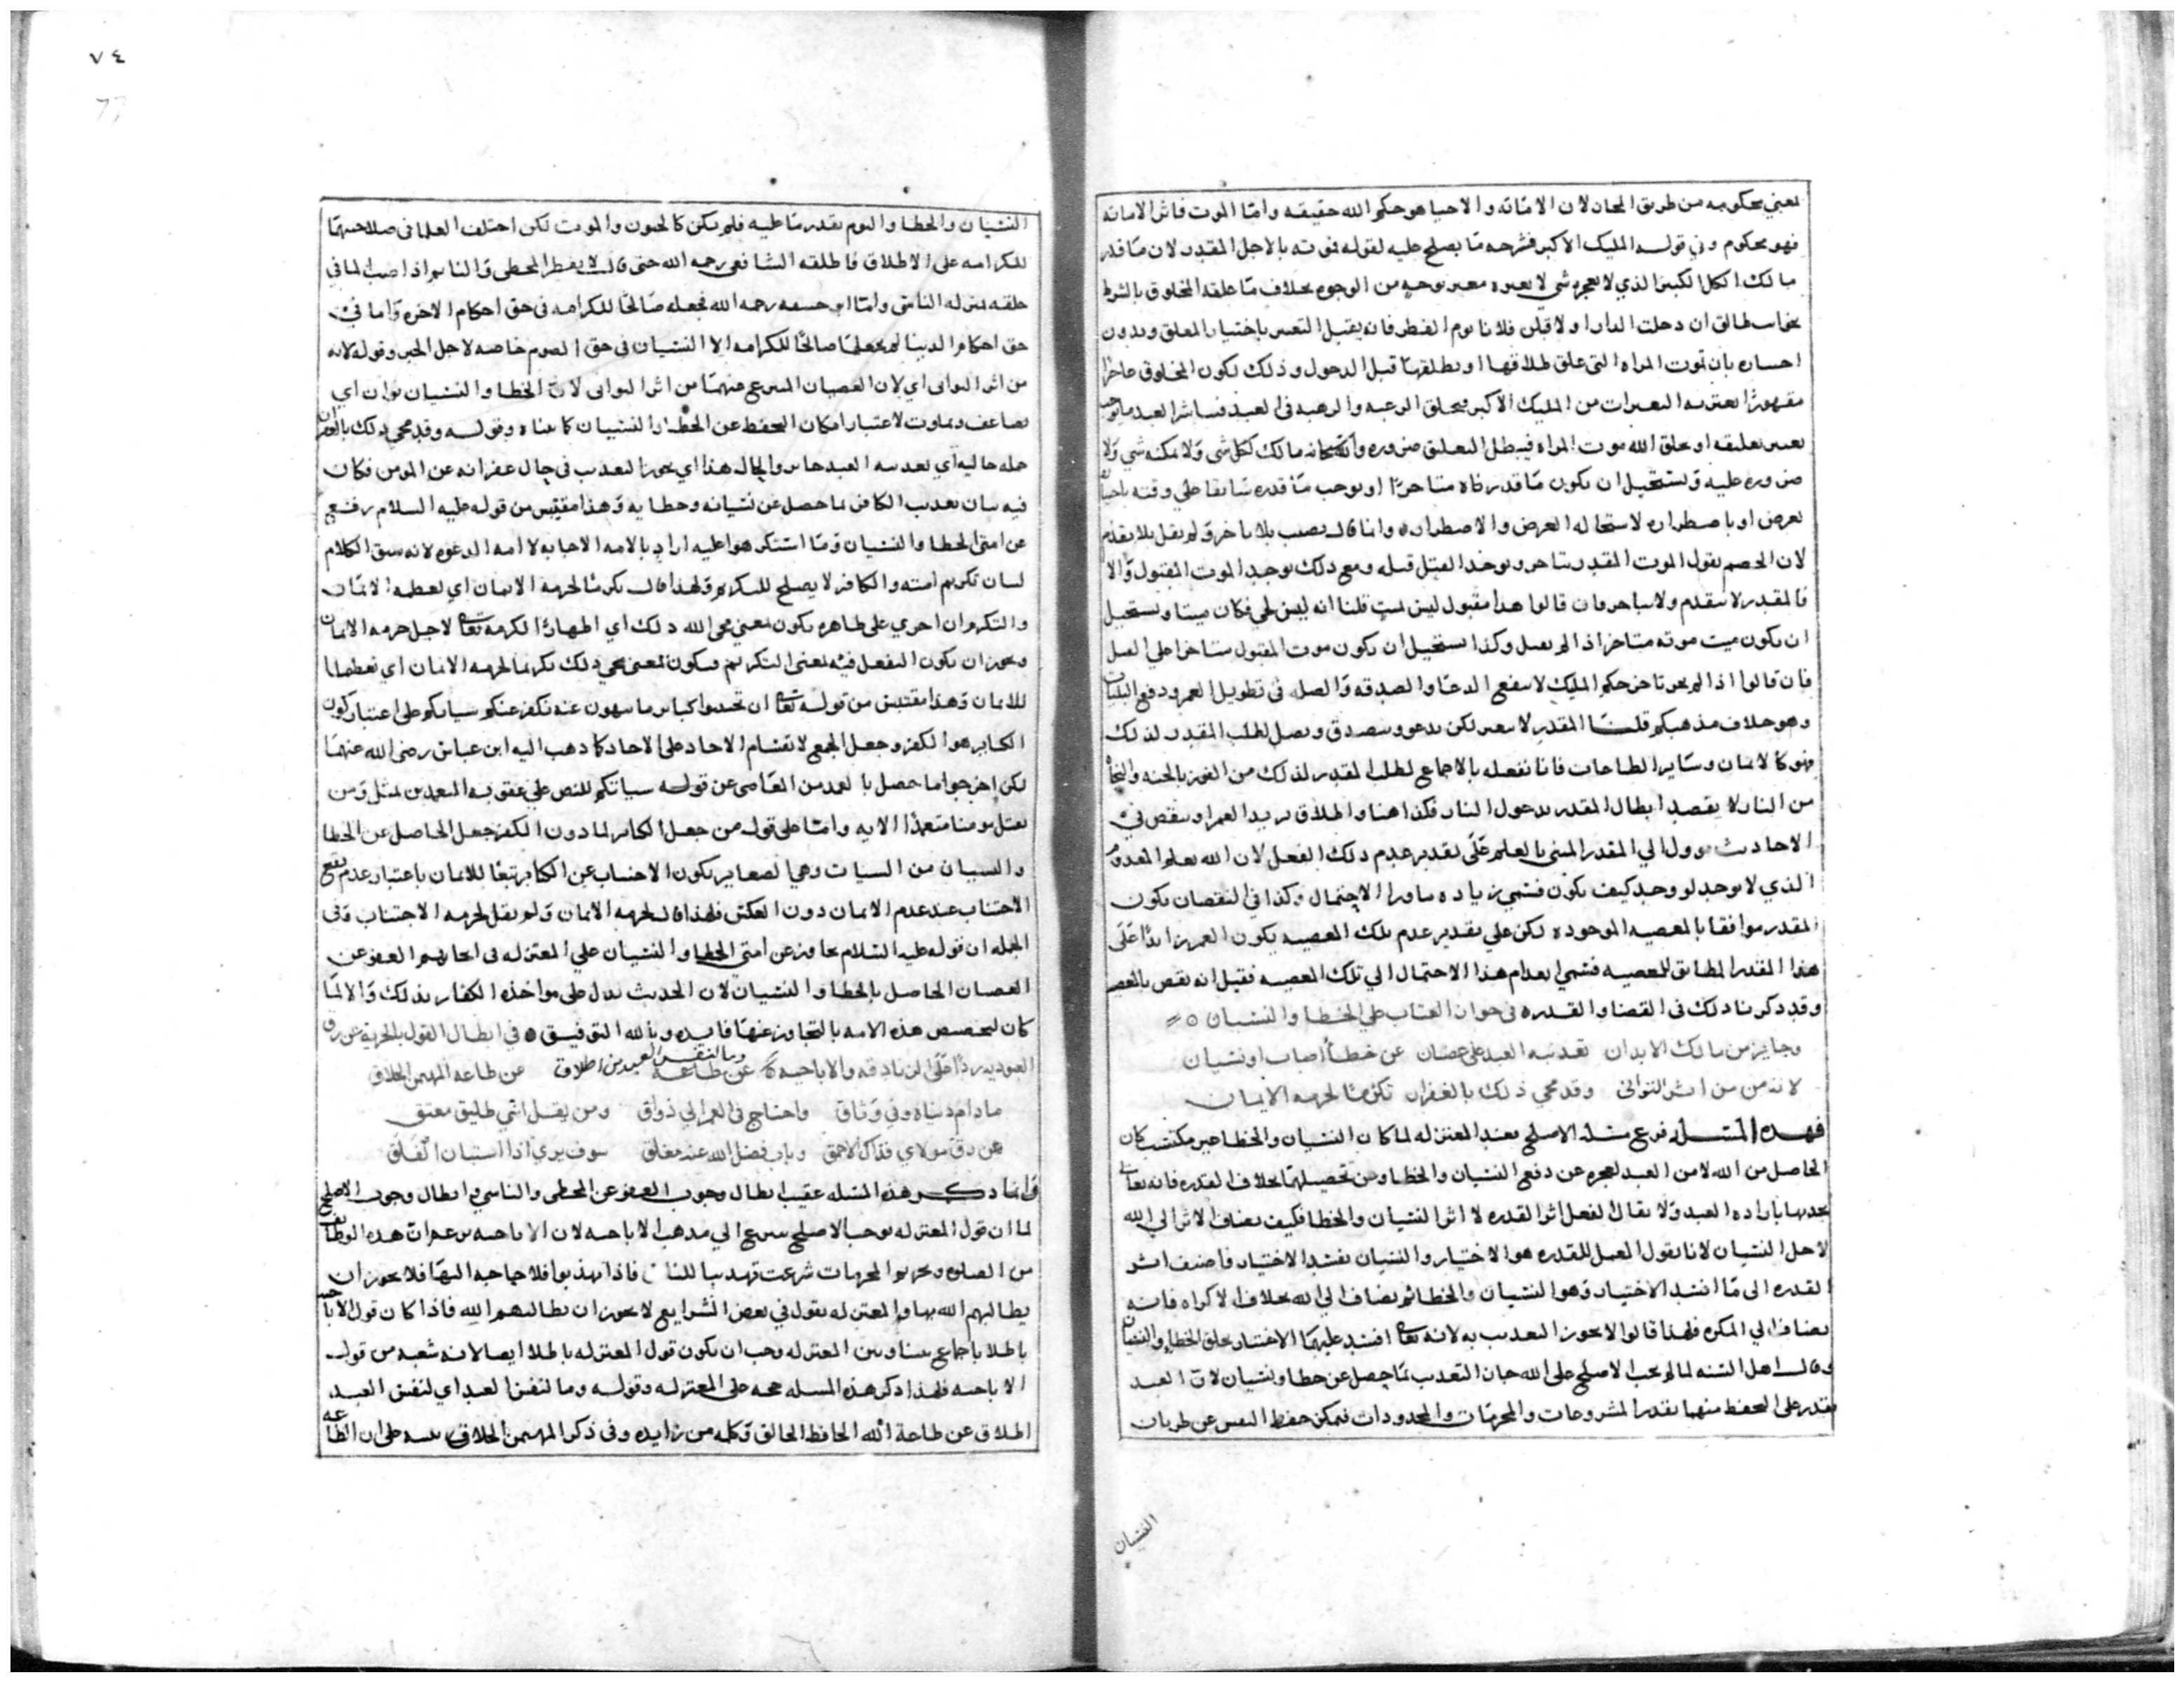 لمعني محكوم به من طريق المجاز لان الاماته والاحيا هو حكم الله حقيقه واما الموت فاثر الاماته
فهو محكوم وفي قوله المليك الاكبر فشرحه ما يصلح عليه لقوله فوته بالاجل المقدر لان ما قدر
مالك الكل الكبير الذي لا يعجزه شي لا يغيره مغير بوجه من الوجوه بخلاف ما علقه المخلوق بالشرط
طالق ان دخلت الدار او لا قبل يوم الفطر فانه يقبل التغيير باختيار المعلق وبدون
اختياره بان تموت المراه التي علق طلاقها او يطلقها قبل الدخول وذلك لكون المخلوق عاجزا
مقهورا يعتريه التغيرات من المليك الاكبر فيخلق الرغبه والرهبه في العبد فيباشر العبد ما يوجب
تغيير تعليقه او يخلق الله موت المراه فيبطل التعليق ضروره والله سبحانه مالك لكل شي ولا يملكه شي ولا
ضروره عليه ويستحيل ان يكون ما قدر فاه متاخرا او يوجب ما قدره سابقا علي وقته باختيار
لغرض او باضطراره لاستحاله الغرض والاضطرار وانما قال بلا تاخر ولم يقل بلا تقدم
لان الخصم يقول الموت المقدر متاخر ويوجد القتل قبله ومع ذلك يوجد الموت المقتول والا
فالمقدر لا يتقدم ولا يتاخر فان قالوا هذا مقبول ليس بميت قلنا انه ليس بحي فكان ميتا ويستحيل
ان يكون ميت موته متاخر اذا لم يقتل وكذا يستحيل ان يكون موت المقتول متاخرا علي القتل
فان قالوا اذا لم يجز تاخر حكم المليك لا ينفع الدعا والصدقه والصله في تطويل العمر ودفع البليات
وهو خلاف مذهبكم قلنا المقدر لا يغير لكن يدعو ويتصدق ويصل لطلب المقدر لذلك
فهو كالايمان وساير الطاعات فانا نفعله بالاجماع لطلب المقدر لذلك من الفوز بالجنه والنجاه
من النار لا بقصد ابطال المقدر بدخول النار فكذا هنا واطلاق يزيد العمر او ينقص في
الاحاديث يوول الي المقدر المبني بالعلم علي تقدير عدم ذلك الفعل لان الله يعلم المعدوم
الذي لا يوجد لو وجد كيف يكون فسمي زياده ما ورا الاحتمال وكذا في النقصان يكون
المقدر موافقا بالمعصيه الموجوده لكن علي تقدير عدم تلك المعصيه يكون العمر زايدا علي
هذا المقدر المطابق للمعصيه فسمي انعدام هذا الاحتمال الي تلك المعصيه فقيل انه نقص بالمعصيه
وقد ذكرنا ذلك في القضا والقدره في جواز العتاب علي الخطا والنسيان
وجايز من مالك الابدان تعذيبه العبد علي عصيان عن خطأ اصاب او نسيان
لانه من من اثر التواني وقد محي ذلك بالغفران تكرما لحرمه الايمان
فهذه المسله فرع مسله الاصلح فعند المعتزله لما كان النسيان والخطا غير مكتسب كان
الحاصل من الله لا من العبد لعجزه عن دفع النسيان والخطا وعن تحصيلهما بخلاف القدره فانه تعالي
يحدثها باراده العبد ولا يقال الفعل اثر القدره لا اثر النسيان والخطا فكيف يضاف الاثر الي الله
لاجل النسيان لانا نقول العمل للقدره هو الاختيار والنسيان يفسد الاختيار فاضيف اثر
القدره الى ما افسد الاختيار وهو النسيان والخطا ثم يضاف الي الله بخلاف الاكراه فانه
يضاف الي المكره فلهذا قالوا لا يجوز التعذيب به لانه تعالي افسد عليهما الاختيار بخلق الخطا والنسيان
وقال اهل السنه لما لم يجب الاصلح على الله جاز التعذيب بما حصل عن خطا ونسيان لان العبد
يقدر على التحفظ منهما بقدر المشروعات والمحرمات والمحدودات فيمكن حفظ النفس عن طريان
النسيان
٧٤
النسيان والخطا والنوم بقدر ما عليه فلم يكن كالجنون والموت لكن اختلف العلما في صلاحيتهما
للكرامه على الاطلاق فاطلقه الشافعي رحمه الله حتى قال لا يفطر المخطي والنايم اذا صب الما في
حلقه بمنزله الناسي واما ابو حنيفه رحمه الله فجعله صالحا للكرامه في حق احكام الاخره واما في
حق احكام الدنيا لم يجعلهما صالحا للكرامه الا النسيان في حق الصوم خاصه لاجل الخبر وقوله لانه
من اثر التواني اي لان العصيان المتفرع منهما من اثر التواني لان الخطا والنسيان نوعان اي
تضاعف وتفاوت لاعتبار امكان التحفظ عن الخطا والنسيان كما بيناه وقوله وقد محي ذلك بالغفران
جمله حاليه اي تعذيبه العبد جايز والحال هذا اي يجوز التعذيب في حال غفرانه عن المومن فكان
فيه بيان تعذيب الكافر بما حصل عن نسيانه وخطايه وهذا مقتبس من قوله عليه السلام رفع
عن امتي الخطا والنسيان وما استكرهوا عليه اراد بالامه الاجابه لا امه الدعوه لانه سق الكلام
لبيان تكريم امته والكافر لا يصلح للتكريم ولهذا قال تكرما لحرمه الايمان اي لعظمه الايمان
والتكرم ان اجري على ظاهره يكون معني محي الله ذلك اي اظهارا لكرمه تعالى لاجل حرمه الايمان
ويجوز ان يكون التفعل فيه لمعنى التكريم فيكون المعنى محي ذلك تكريما لحرمه الايمان اي تعظيما
للايمان وهذا مقتبس من قوله تعالى ان تجتنبوا كباير ما تنهون عنه نكفر عنكم سياتكم على اعتبار كون
الكباير هو الكفر وجعل الجمع لانقسام الاحاد على الاحاد كما ذهب اليه ابن عباس رضى الله عنهما
لكن اخرجوا ما حصل بالعمد من العاصي عن قوله سياتكم للنص علي عقوبه المتعمد من مثل ومن
يقتل مومنا متعمدا الايه واما على قول من جعل الكباير لما دون الكفر جعل الحاصل عن الخطا
والنسيان من السيات وهي الصغاير يكون الاجتناب عن الكباير تبعا للايمان باعتبار عدم نفع
الاجتناب عند عدم الايمان دون العكس فلهذا قال لحرمه الايمان ولم يقل لحرمه الاجتناب وفي
الجمله ان قوله عليه السلام تجاوز عن امتي الخطا والنسيان علي المعتزله في ايجابهم العفو عن
العصيان الحاصل بالخطا والنسيان لان الحديث يدل على مواخذه الكفار بذلك والا لما
كان لتخصيص هذه الامه بالتجاوز عنها فايده وبالله التوفيق في ابطال القول بالحريه عن رق
العبوديه ردا على الزنادقه والاباحيه وما لنفس العبد من اطلاق عن طاعه المهيمن الخلاق
مادام دنياه وفي وثاق واحتاج في العمر الي ذواق ومن يقل اني طليق معتق
عن رق مولاي فذاك الاحمق وباب فضل الله عنه مغلق سوف يري اذا استبان الفلق
وانما ذكر هذه المسله عقيب ابطال وجوب العفو عن المخطي والناسي وابطال وجوب الاصلح
لما ان قول المعتزله بوجب الاصلح يتفرع الي مذهب الاباحه لان الاباحيه يزعمون ان هذه الوظايف
من الصلوه وتحريم المحرمات شرعت تهذيبا للناس فاذا تهذبوا فلا حاجه اليها فلا يجوز ان
يطالبهم الله بها والمعتزله يقول في بعض الشرايع لا يجوز ان يطالبهم الله فاذا كان قول الاباحيه
باطلا باجماع بيننا وبين المعتزله وجب ان يكون قول المعتزله باطلا ايضا لانه شعبه من قول
الاباحيه فلهذا ذكر هذه المسله حجه على المعتزله وقوله وما لنفس العبد اي لنفس العبد
اطلاق عن طاعة الله الحافظ الخالق وكلمه من زايده وفي ذكر المهيمن الخلاق تنبيه على ان الطاعه